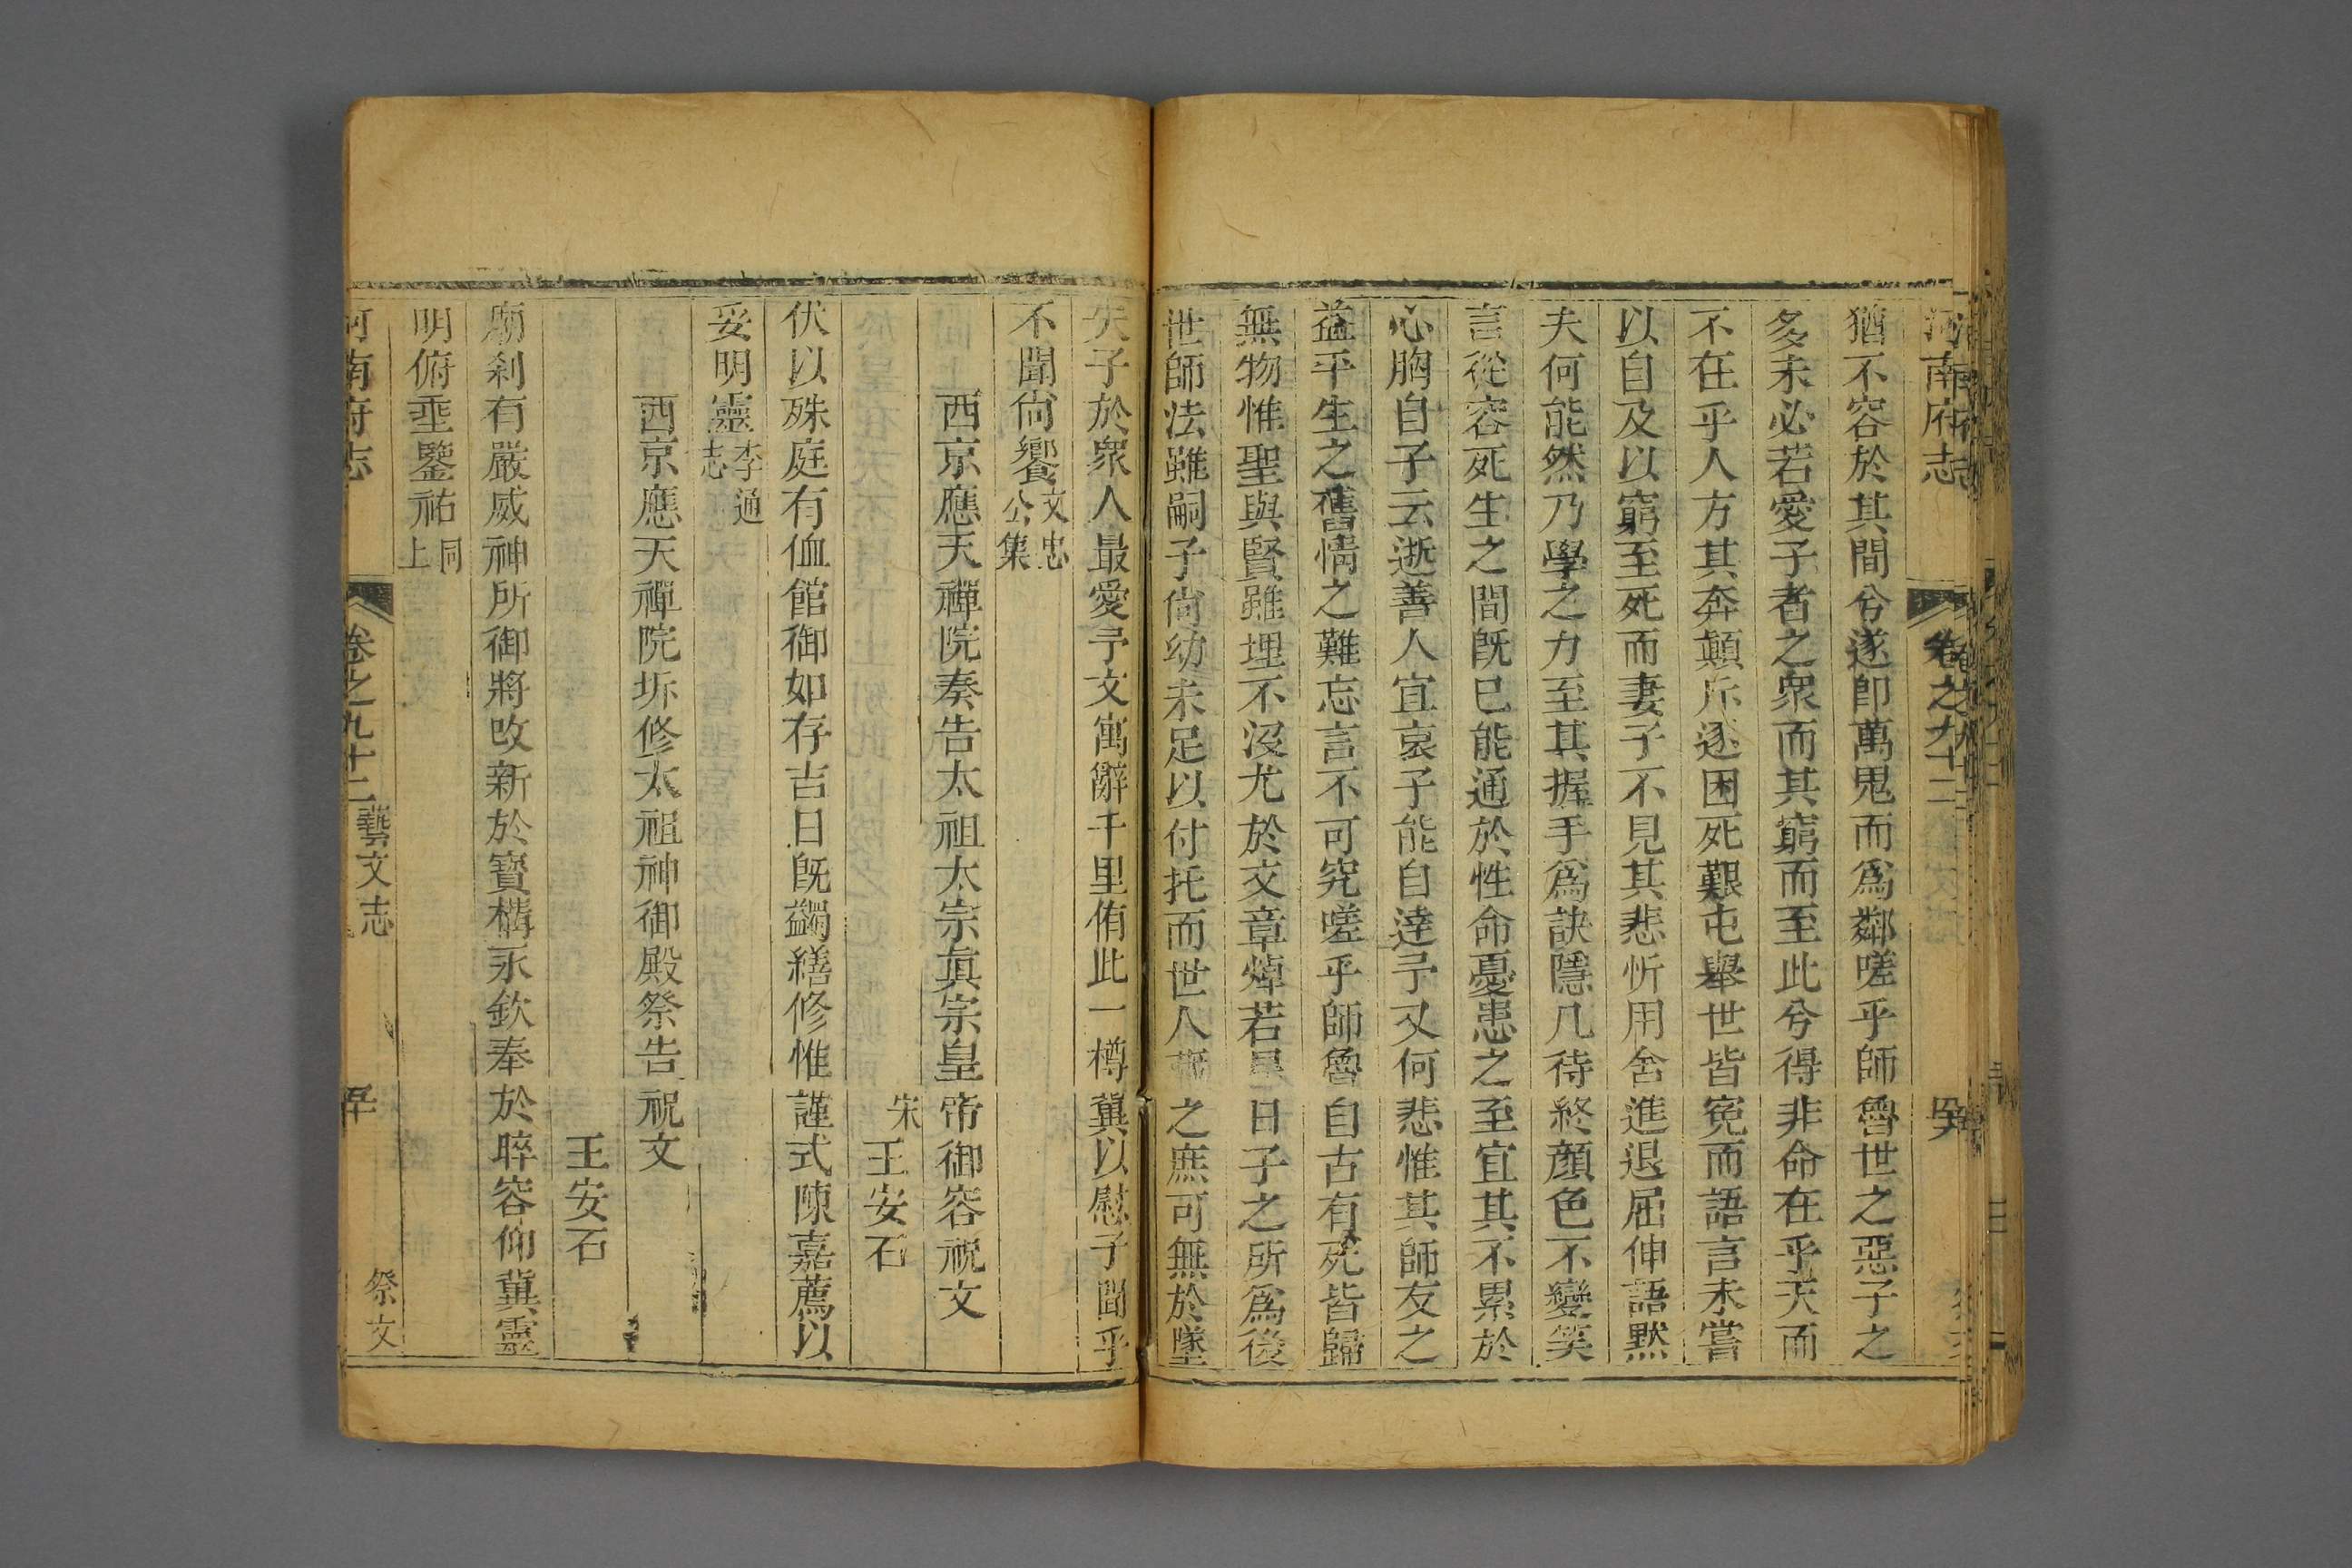 河南府志 卷之九十二
猶不容於其間兮遂即萬鬼而爲鄰嗟乎師魯世之惡子之
多未必若愛子者之衆而其窮而至此兮得非命在乎天而
不在乎人方其奔顛斥逐困死艱屯舉世皆寃而語言未嘗
以自及以窮至死而妻子不見其悲忻用舍進退屈伸語黙
夫何能然乃學之力至其握手爲訣隱几待終顔色不變笑
言從容死生之間旣已能通於性命憂患之至宜其不累於
心胸自子云逝善人宜哀子能自達予又何悲惟其師友之
益平生之舊情之難忘言不可究嗟乎師魯自古有死皆歸
無物惟聖與賢雖埋不没尤於文章焯若星日子之所爲後
世師法雖嗣子尚幼未足以付托而世人藏之庶可無於墜
失子於衆人最愛予文寓辭千里侑此一樽冀以慰子聞乎
不聞尚饗文忠公集
西京應天禪院奏告太祖太宗眞宗皇帝御容祝文
宋王安石
伏以殊庭有侐館御如存吉日旣蠲繕修惟謹式陳嘉薦以
妥明靈李通志
西京應天禪院坼修太祖神御殿祭告祝文
王安石
廟刹有嚴威神所御將改新於寶構永欽奉於睟容仰冀靈
明俯垂鑒祐同上
河南府志 卷之九十二 藝文志 祭文